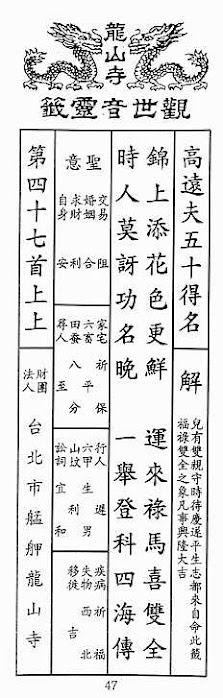 龍山寺
觀世音靈籤
高遠夫五十得名
解
兒有雙親守時待慶遂平生志都來自命此籤
福祿雙全之象凡事興隆大吉
錦上添花色更鮮 運來祿馬喜雙全
時人莫訝功名晚 一舉登科四海傳
聖意
交易 阻
婚姻 合
求財 利
自身 安
家宅 祈保
六畜 平
田蚕 八分
尋人 至
行人 遲
六甲 生男
山坟 利
訟詞 宜和
疾病 祈福
失物 西北
移徙 吉
第四十七首上上
財團法人 台北市艋舺龍山寺
47